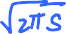 √2πS